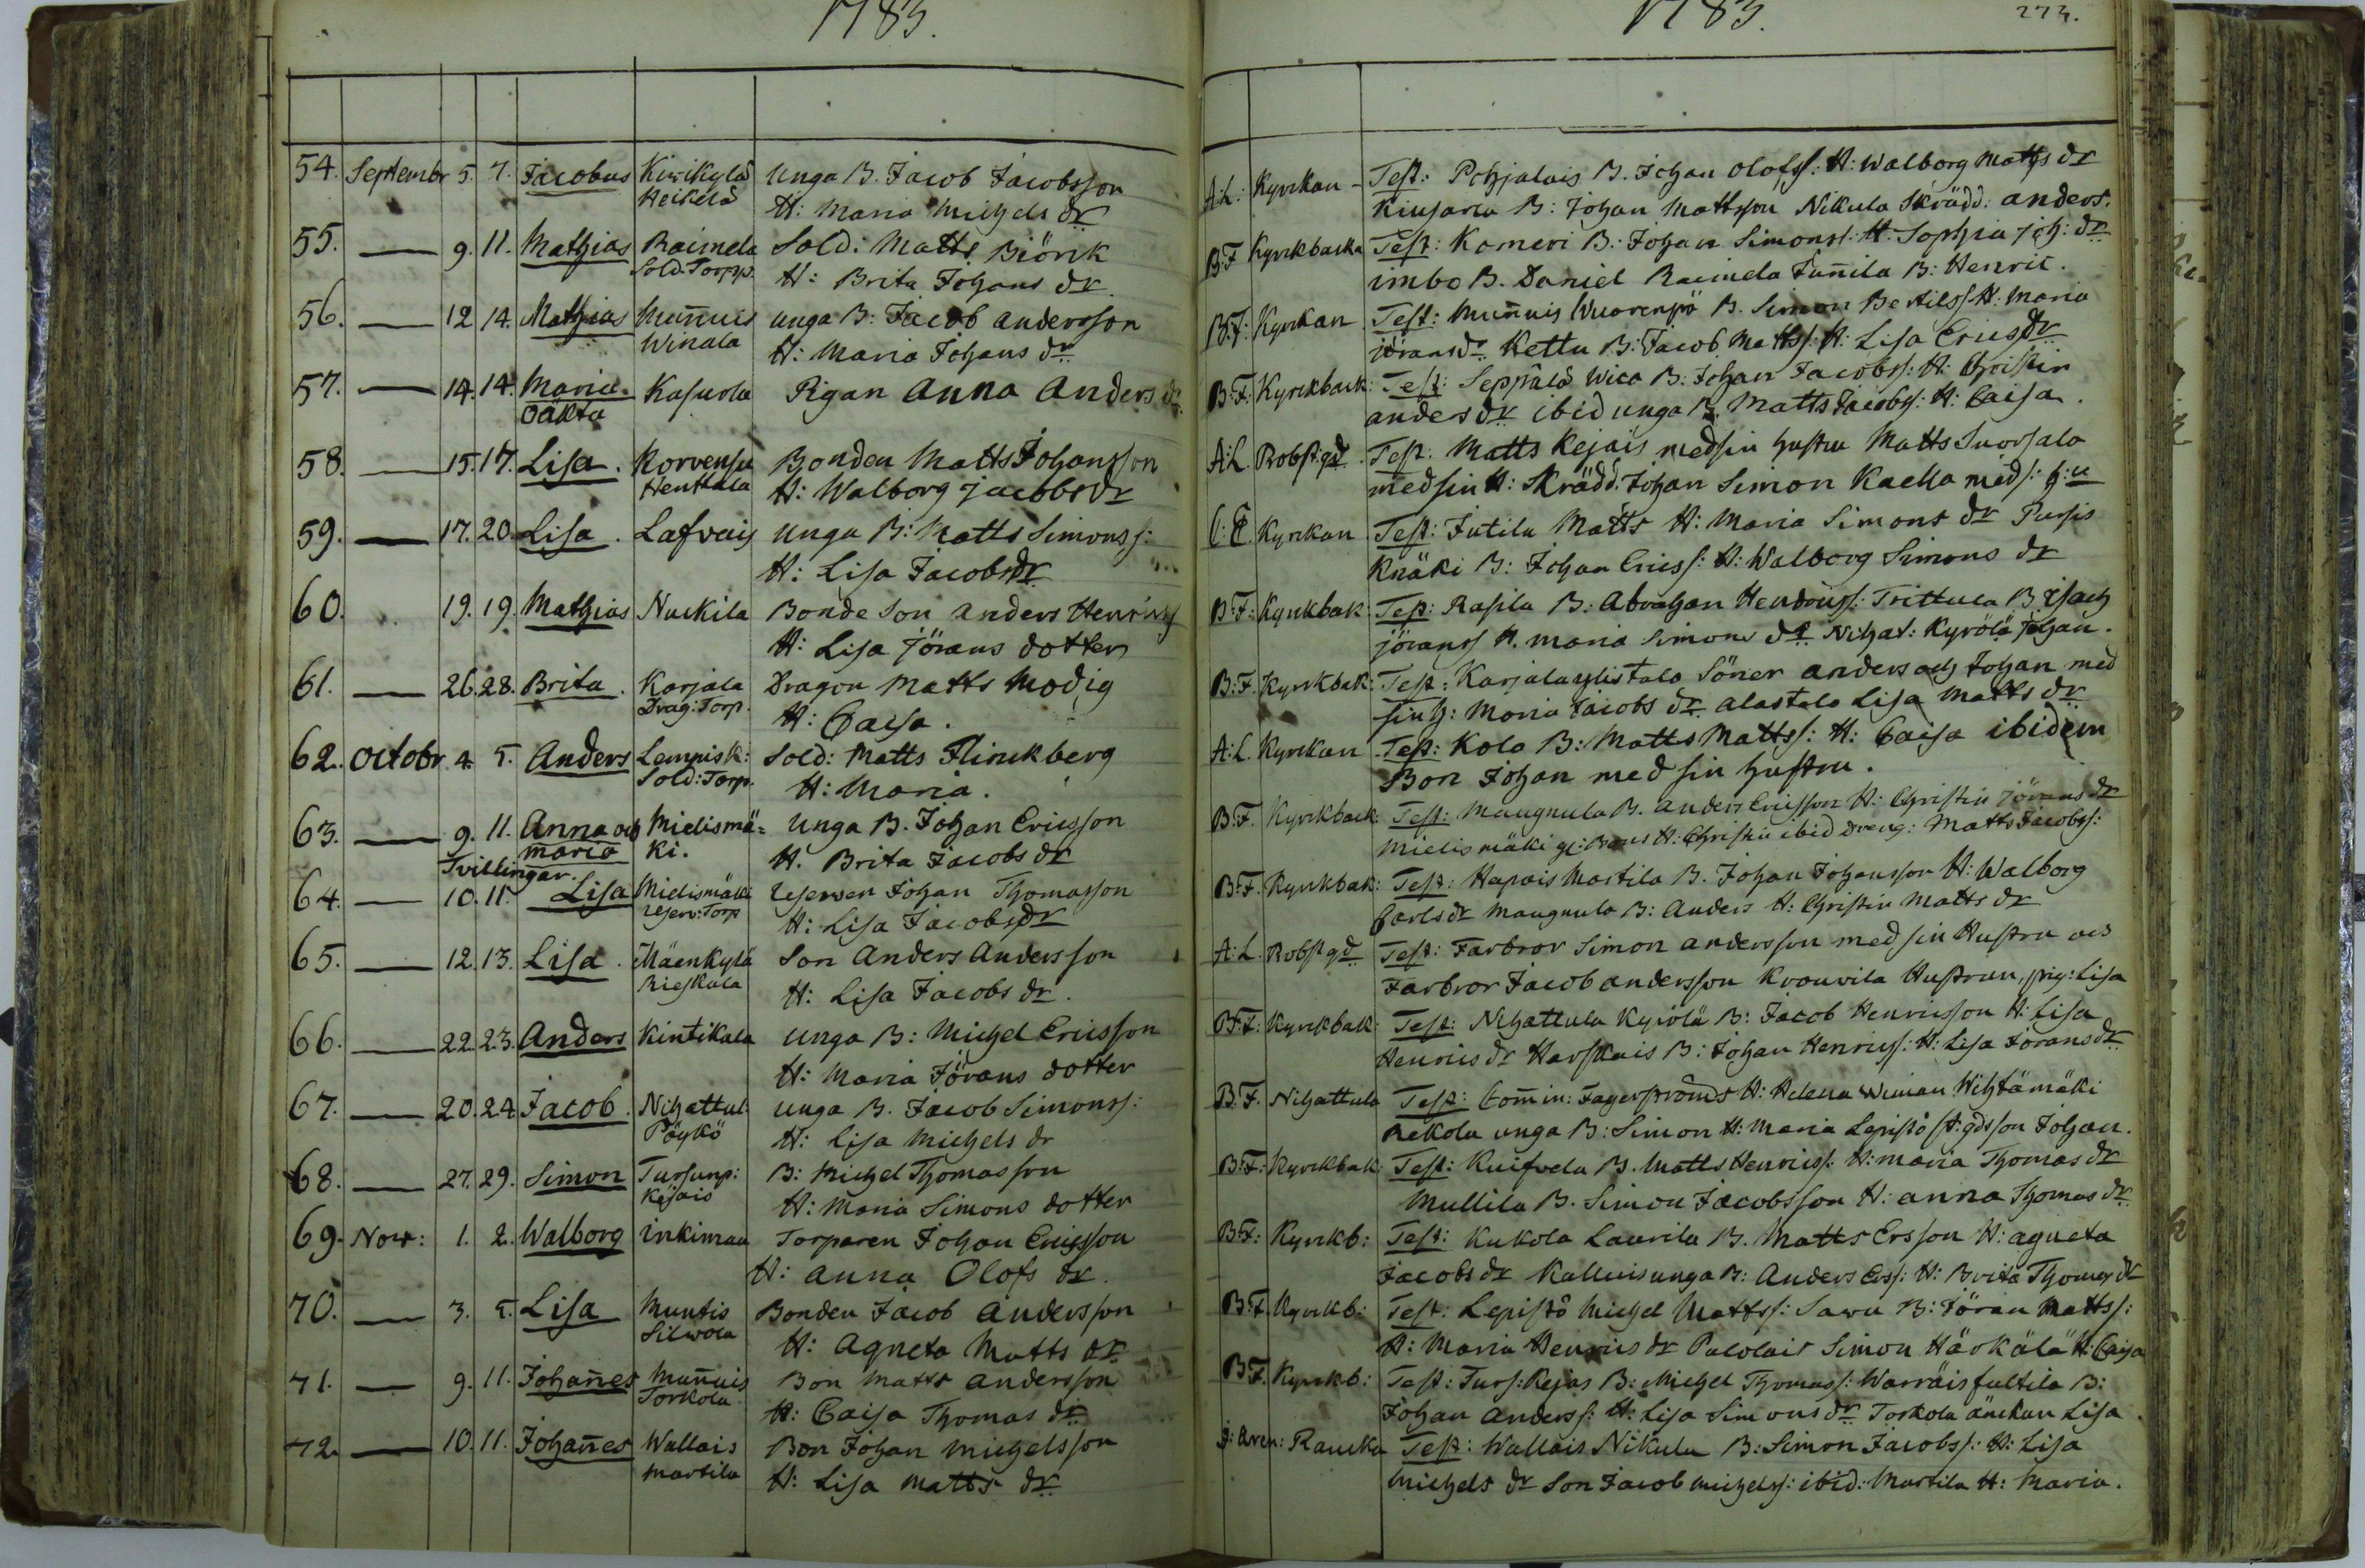 1783.
1783.
273.
54. Septembr 5. 7. Jacobus Kirikylä Unga B. Jacob Jacobsson
Heikelä H: Maria Michels dr
A:L: Kyrckan Test: Pohjalais B. Johan Olofss: H: Walborg Matts dr
Kiusarla B: Johan Mattsson Nikula Skrädd: anders.
55. — 9. 11. Mathias Raimela Sold: Matts Biörck
Sold: Torpp. H: Brita Johans dr
B:F Kyrckbacka Test: Komeri B: Johan Simonss: H: Sophia joh: dr
imbo B. Daniel Raimela Juñila B: Henric.
56. — 12 14. Mathias Muñuis unga B: Jacob andersson
Winala H: Maria Johans dr
B:F: Kyrckan Test: Muñuis Wuorenpä B. Simon Bertilss H: Maria
jöransdr Kettu B: Jacob Mattss: H: Lisa Ericsdr
57. — 14. 14. Maria Kasurla Pigan Anna Anders dr
oäkta
B:F: Kyrckback: Test: Seppälä Wico B. Johan Jacobss: H: Christin
anders dr ibid unga B. Matts Jacobs: H: Caisa.
58. — 15. 17. Lisa. Korvensu Bonden Matts Johansson
Henttala H: Walborg jacobs dr
A:L. Robstgd. Test. Matts Kejais med sin hustru Matts Suorsala
med sin H: Skrädd: Johan Simon Kaella med s: h:u
59. — 17. 20. Lisa. Lafvais unga B: Matts Simonss:
H: Lisa Jacobsdr
C:E. Kyrckan Test: Jutila Matts H: Maria Simons dr Pursis
Knäki B: Johan Ericss: H: Walborg Simons dr
60. 19. 19. Mathias Nuckila Bonde Son anders Henricss
H: Lisa Jörans dotter
B:F: Kyrckbak: Test: Rasila B. Abraham Hendricss: Trittula B isach
jöranss H. maria Simons dr Nihat: Kyrölä Johan.
61. — 26. 28. Brita. Karjala Dragon Matts Modig
Drag: Torp. H: Caisa.
B:F. Kyrckbak: Test: Karjala ylistalo Söner anders och Johan med
sin h: Maria Jacobs dr alastalo Lisa Matts dr
62. Octobr 4. 5. Anders Lempisk: Sold: Matts Flinckberg
Sold: Torp. H: Maria.
A:L. Kyrckan Test: Kolo B: Matts Mattss: H: Caisa ibidem
Bon Johan med sin hustru.
63. — 9. 11. Anna och Mielismä= Unga B. Johan Ericsson
maria ki. H. Brita Jacobs dr
Tvillingar.
B:F. Kyrckback: Test: Maugnula B. anders Ericsson H: Christin Jörans dr
Mielismäki H: Christin ibid dreng: Matts Jacobss:
64. — 10. 11. Lisa Mielismäki reserven Johan Thomasson
reserv: Torp H: Lisa Jacobs dr
B:F. Kyrckbak: Test: Hapais Martila B. Johan Johansson H: Walborg
Carls dr Maugnula B: Anders H: Christin Matts dr
65. — 12. 13. Lisa. Mäenkylä Son Anders Andersson
Rieskala H: Lisa Jacobs dr.
A:L. Robstgd Test: Farbror Simon andersson med sin Hustru och
Farbror Jacob andersson Krouvila Hustrun, pig: Lisa
66. — 22. 23. Anders Kintikala unga B: Michel Ericsson
H: Maria Jörans dotter
B:F: Kyrckbak: Test: Nihattula Kyrölä B: Jacob Henricsson H: Lisa
Henrics dr Harskais B: Johan Henricss: H: Lisa Jörans dr
67. — 20. 24. Jacob. Nihattul: unga B. Jacob Simonss:
Pöykö H: Lisa Michels dr
B:F. Nihattula Test: Com̄in: Fagerströms H: Helena Wiman Wihtämäki
Rekola unga B: Simon H: Maria Lepistö son Johan.
68. — 27. 29. Simon Tursunp: B: Michel Thomasson
Kejais H: Maria Simons dotter
B:F: Kyrckbak: Test: Kuifvela B. Matts Henricss: H: maria Thomas dr
Mullila B. Simon Jacobsson H: anna Thomas dr
69. Nov: 1. 2. Walborg inkiman Torparen Johan Ericsson
H: anna Olofs dr.
B:F: Kyrckb: Test: Kukola Laurila B. Matts Ersson H: agneta
Jacobs dr Kalluis unga B: Anders Erss: H: Brita Thomas dr
70. — 3. 5. Lisa Muntis Bonden Jacob andersson
Silwola H: Agneta Matts dr
B:F. Kyrckb: Test: Lepistö Michel Mattss: Sawu B: Jöran Mattss:
H: Maria Henrics dr Palolais Simon Härkälä H: Caisa
71. — 9. 11. Johañes Muñuis Bon Matts andersson
Torkola H: Caisa Thomas dr
B:F. Kyrckb: Test: Turs: Kejas B: Michel Thomass: Warräis fultila B:
Johan Anderss: H: Lisa Simons dr Torkola änckan Lisa
72. — 10. 11. Johañes Wallais Bon Johan Michelsson
Martila H: Lisa Matts dr
J: aven: Raucka Test: Wallais Nikula B: Simon Jacobss: H: Lisa
Michels dr Son Jacob Michelss: ibid: Martila H: Maria.